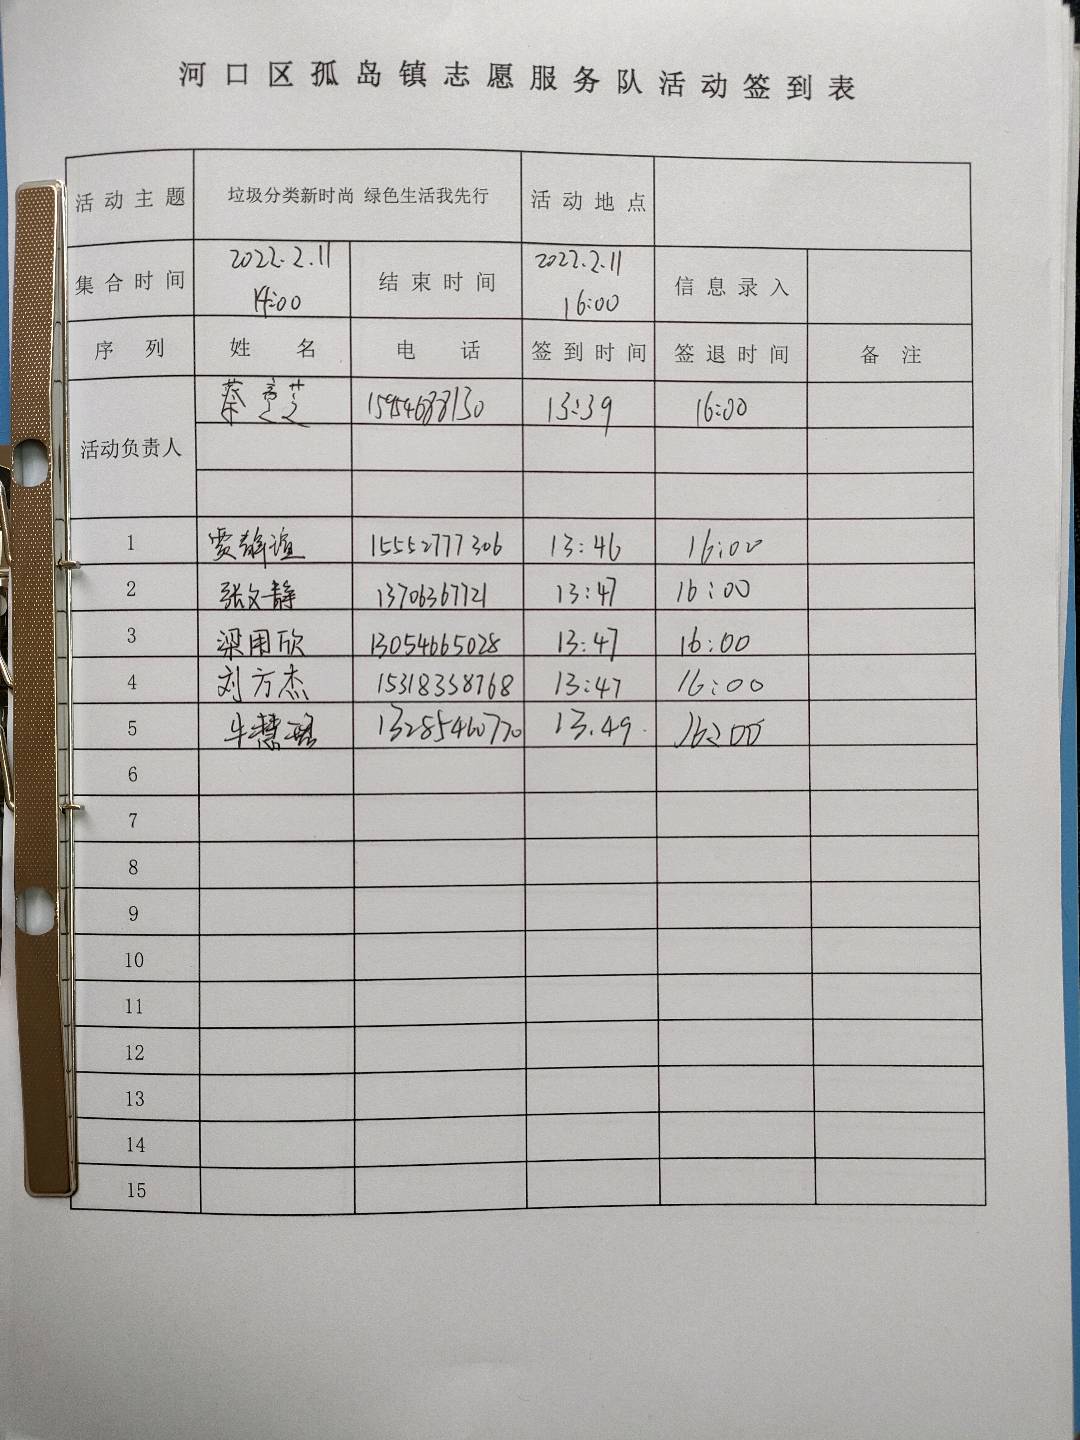 河口区孤岛镇志愿服务队活动签到表
活动主题 垃圾分类新时尚 绿色生活我先行 活动地点
集合时间 2022.2.11 14:00 结束时间 2022.2.11 16:00 信息录入
序列 姓名 电话 签到时间 签退时间 备注
活动负责人 蔡 15954688130 13:39 16:00
1 贾静谊 15552777306 13:46 16:00
2 张文静 13706367721 13:47 16:00
3 梁用欣 13054665028 13:47 16:00
4 刘方杰 15318358768 13:47 16:00
5 牛慧 13285460770 13.49 16:00
6
7
8
9
10
11
12
13
14
15